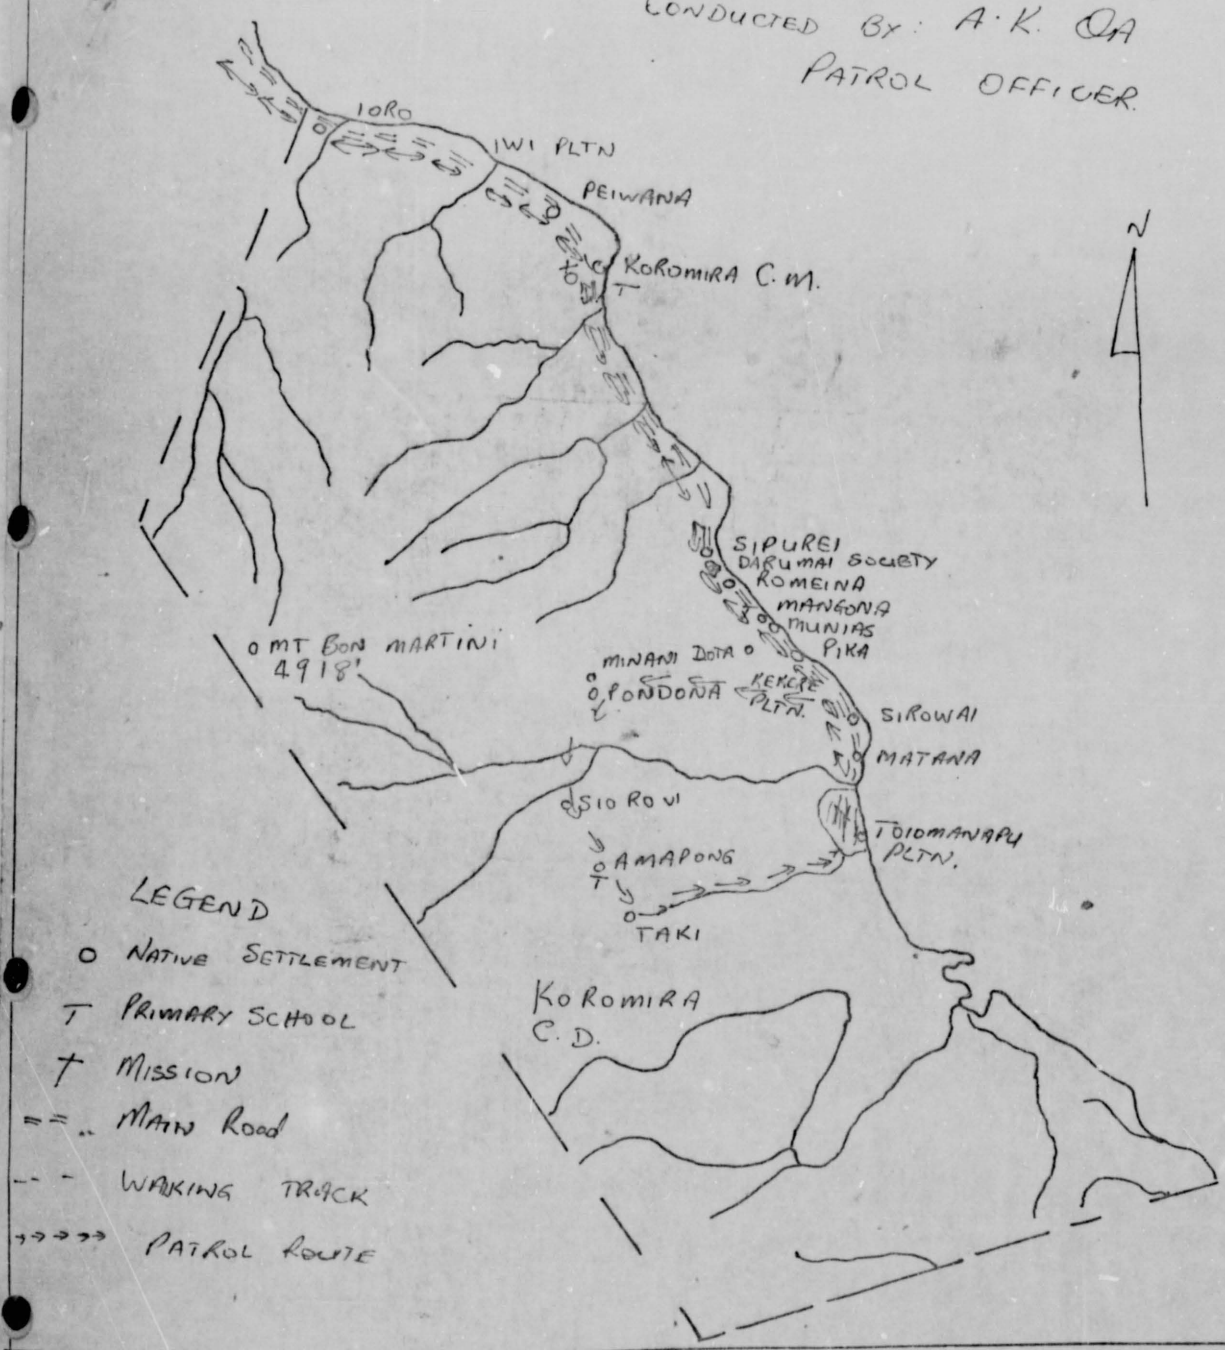 CONDUCTED BY: A.K. OA
PATROL OFFICER.
IORO
IWI PLTN
PEIWANA
KOROMIRA C.M.
T
N
SIPUREI
DARUMAI SOCIETY
ROMEINA
MANGONA
MUNIAS
PIKA
MT BON MARTINI
4918'
MINANI DOTA
PONDONA
KEKERE
PLTN.
SIROWAI
MATANA
SIOROVI
TOIOMANAPU
PLTN.
AMAPONG
T
TAKI
KOROMIRA
C.D.
LEGEND
NATIVE SETTLEMENT
T PRIMARY SCHOOL
MISSION
MAIN Road
WAKING TRACK
PATROL ROUTE